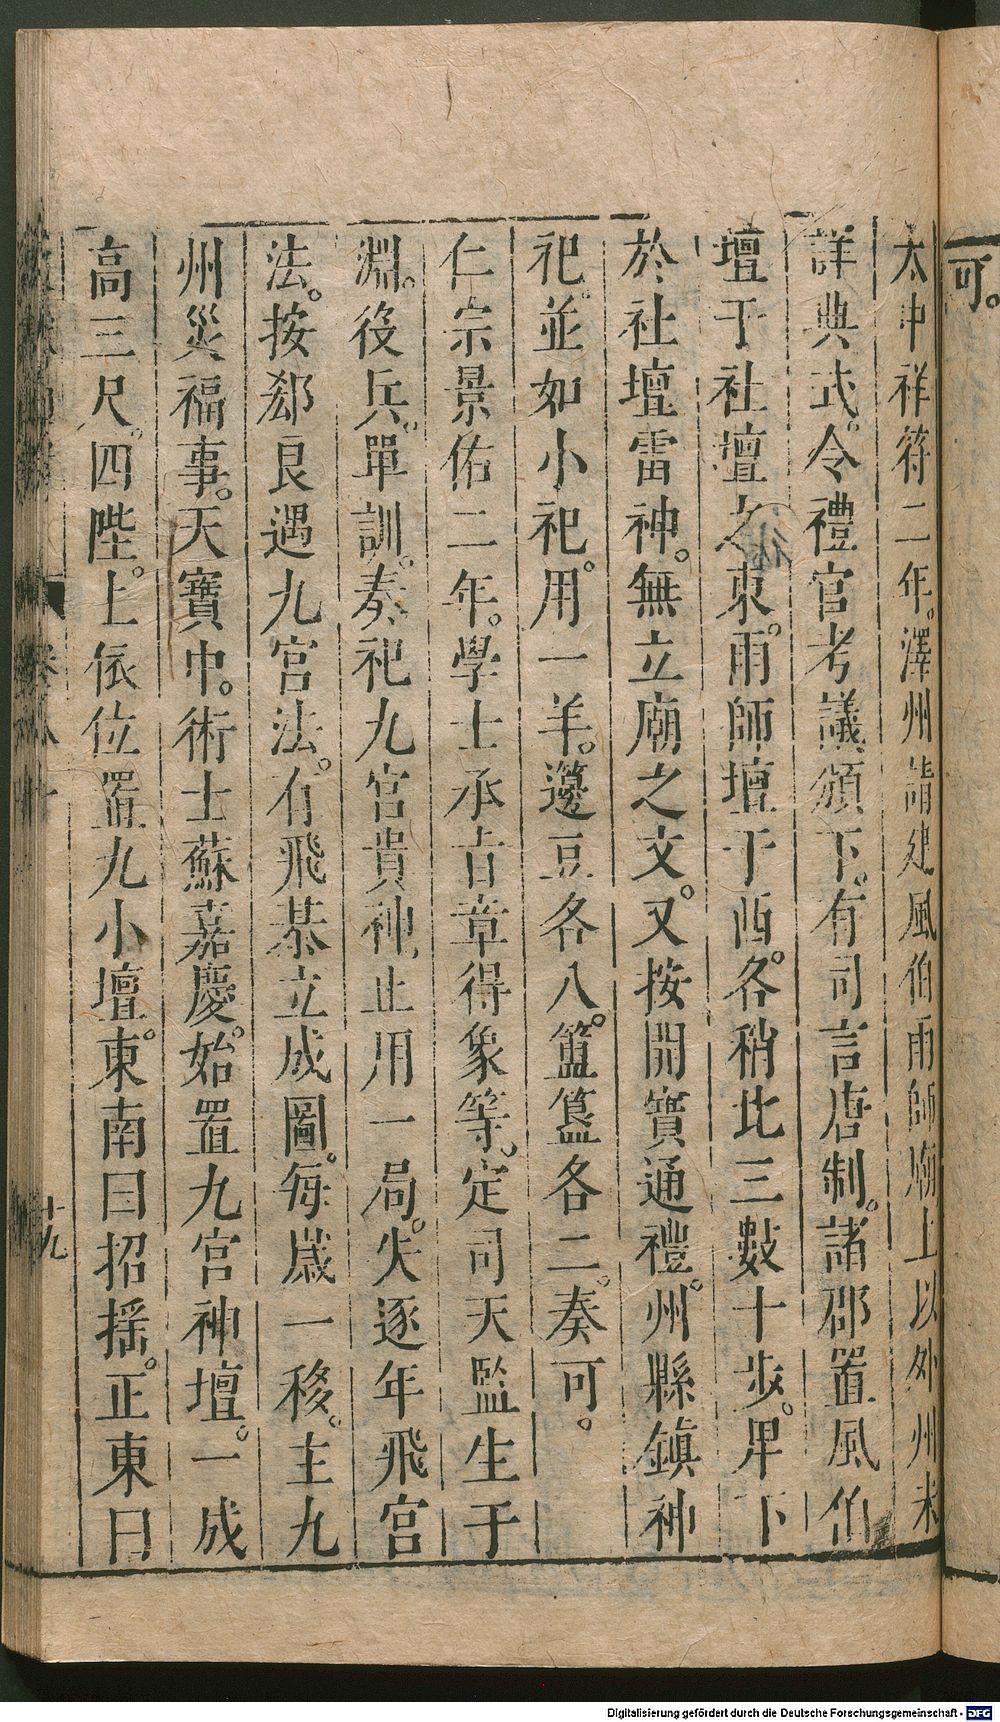 可。
太中祥符二年。澤州請建風伯雨師廟上以外州未
詳典式。令禮官考議頒下。有司言唐制。諸郡置風伯
壇于社壇之東。雨師壇于西。各稍北三數十步。卑下
於社壇雷神。無立廟之文。又按開寶通禮。州縣鎮神
祀。並如小祀。用一羊。籩豆各八。簠簋各二。奏可。
仁宗景佑二年。學士承旨章得象等。定司天監生于
淵。役兵。單訓。奏祀九宮貴神。止用一局。失逐年飛宮
法。按郄良遇九宮法。有飛棊立成圖。每歲一移。主九
州災福事。天寶中。術士蘇嘉慶。始置九宮神壇。一成
高三尺。四陛。上依位置九小壇。東南曰招搖。正東曰
十九
Digitalisierung gefördert durch die Deutsche Forschungsgemeinschaft - DFG